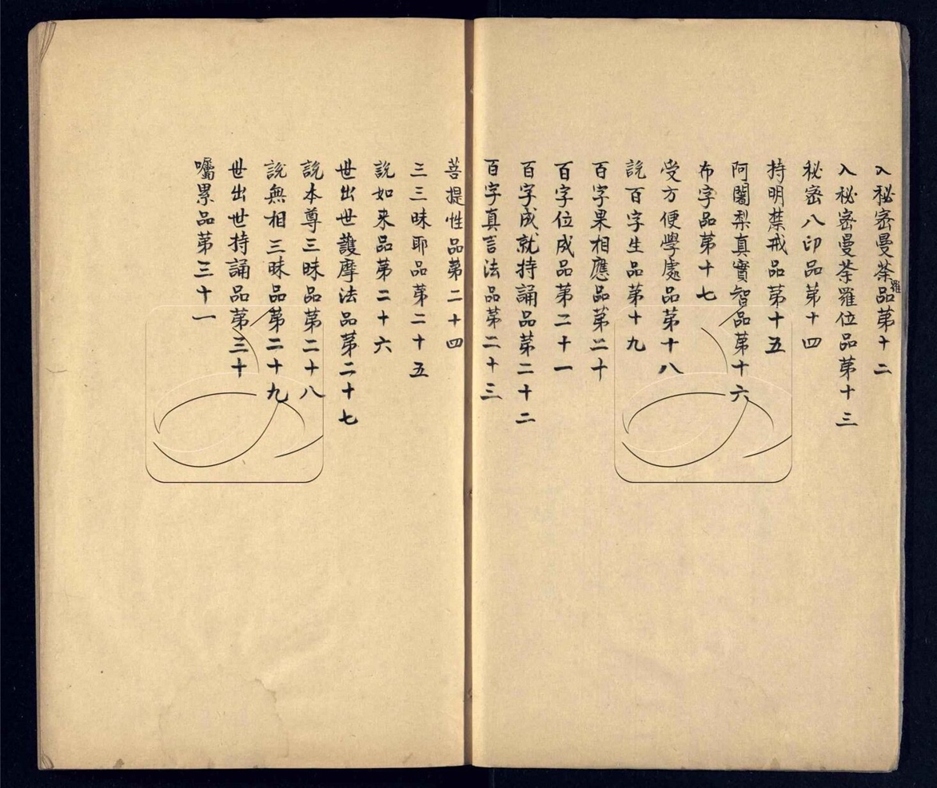 入秘密曼荼羅品第十二
入秘密曼荼羅位品第十三
秘密八印品第十四
持明禁戒品第十五
阿闍梨真實智品第十六
布字品第十七
受方便學處品第十八
說百字生品第十九
百字果相應品第二十
百字位成品第二十一
百字成就持誦品第二十二
百字真言法品第二十三
菩提性品第二十四
三三昧耶品第二十五
說如来品第二十六
世出世護摩法品第二十七
說本尊三昧品第二十八
說無相三昧品第二十九
世出世持誦品第三十
囑累品第三十一